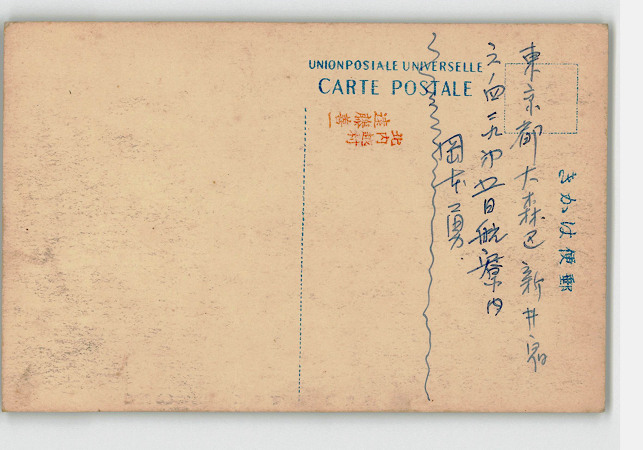 UNION POSTALE UNIVERSELLE
CARTE POSTALE
きかは便郵
東京都大森区新井宿
六ノ四二九第五日航寮内
岡本勇
遠藤喜一